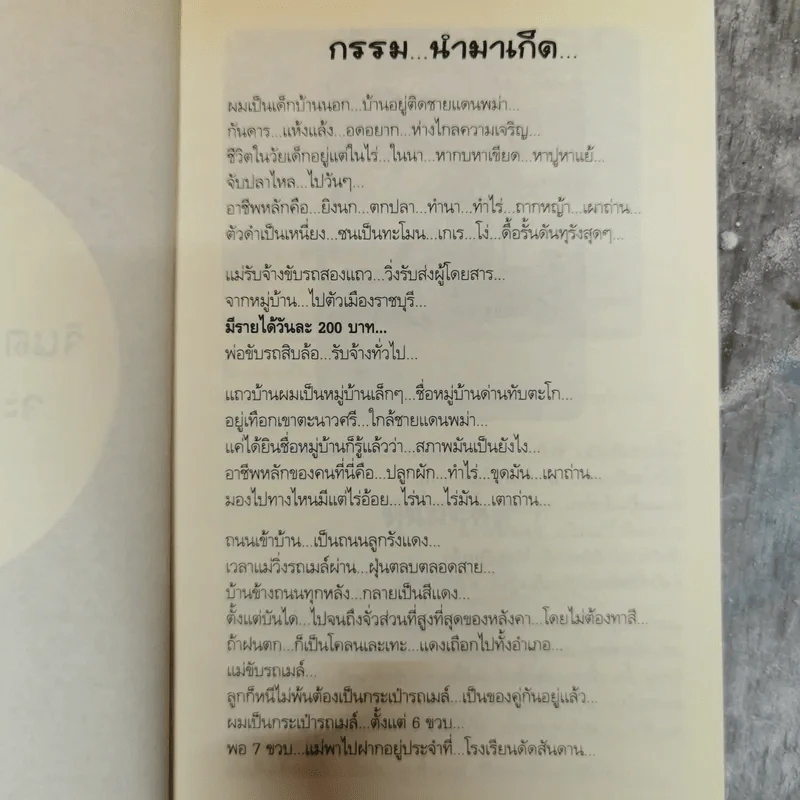 กรรม...นำมาเกิด...
ผมเป็นเด็กบ้านนอก...บ้านอยู่ติดชายแดนพม่า...
กันดาร...แห้งแล้ง...อดอยาก...ห่างไกลความเจริญ...
ชีวิตในวัยเด็กอยู่แต่ในไร่...ในนา...หากบหาเขียด...หาปูหาแย้...
จับปลาไหล...ไปวันๆ...
อาชีพหลักคือ...ยิงนก...ตกปลา...ทำนา...ทำไร่...ถากหญ้า...เผาถ่าน...
ตัวดำเป็นเหนี่ยง...ซนเป็นทะโมน...เกเร...โง่...ดื้อรั้นดันทุรังสุดๆ...
แม่รับจ้างขับรถสองแถว...วิ่งรับส่งผู้โดยสาร...
จากหมู่บ้าน...ไปตัวเมืองราชบุรี...
มีรายได้วันละ 200 บาท...
พ่อขับรถสิบล้อ...รับจ้างทั่วไป...
แถวบ้านผมเป็นหมู่บ้านเล็กๆ...ชื่อหมู่บ้านด่านทับตะโก...
อยู่เทือกเขาตะนาวศรี...ใกล้ชายแดนพม่า...
แค่ได้ยินชื่อหมู่บ้านก็รู้แล้วว่า...สภาพมันเป็นยังไง...
อาชีพหลักของคนที่นี่คือ...ปลูกผัก...ทำไร่...ขุดมัน...เผาถ่าน...
มองไปทางไหนมีแต่ไร่อ้อย...ไร่นา...ไร่มัน...เตาถ่าน...
ถนนเข้าบ้าน...เป็นถนนลูกรังแดง...
เวลาแม่วิ่งรถเมล์ผ่าน...ฝุ่นตลบตลอดสาย...
บ้านข้างถนนทุกหลัง...กลายเป็นสีแดง...
ตั้งแต่บันได...ไปจนถึงจั่วส่วนที่สูงที่สุดของหลังคา...โดยไม่ต้องทาสี...
ถ้าฝนตก...ก็เป็นโคลนเละเทะ...แดงเถือกไปทั้งอำเภอ...
แม่ขับรถเมล์...
ลูกก็หนีไม่พ้นต้องเป็นกระเป๋ารถเมล์...เป็นของคู่กันอยู่แล้ว...
ผมเป็นกระเป๋ารถเมล์...ตั้งแต่ 6 ขวบ...
พอ 7 ขวบ...แม่พาไปฝากอยู่ประจำที่...โรงเรียนดัดสันดาน...